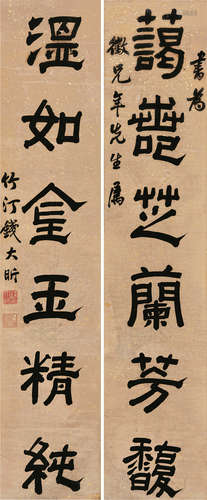 藹若芝蘭芳馥
書為
徵兄年先生属
溫如金玉精純
竹汀錢大昕